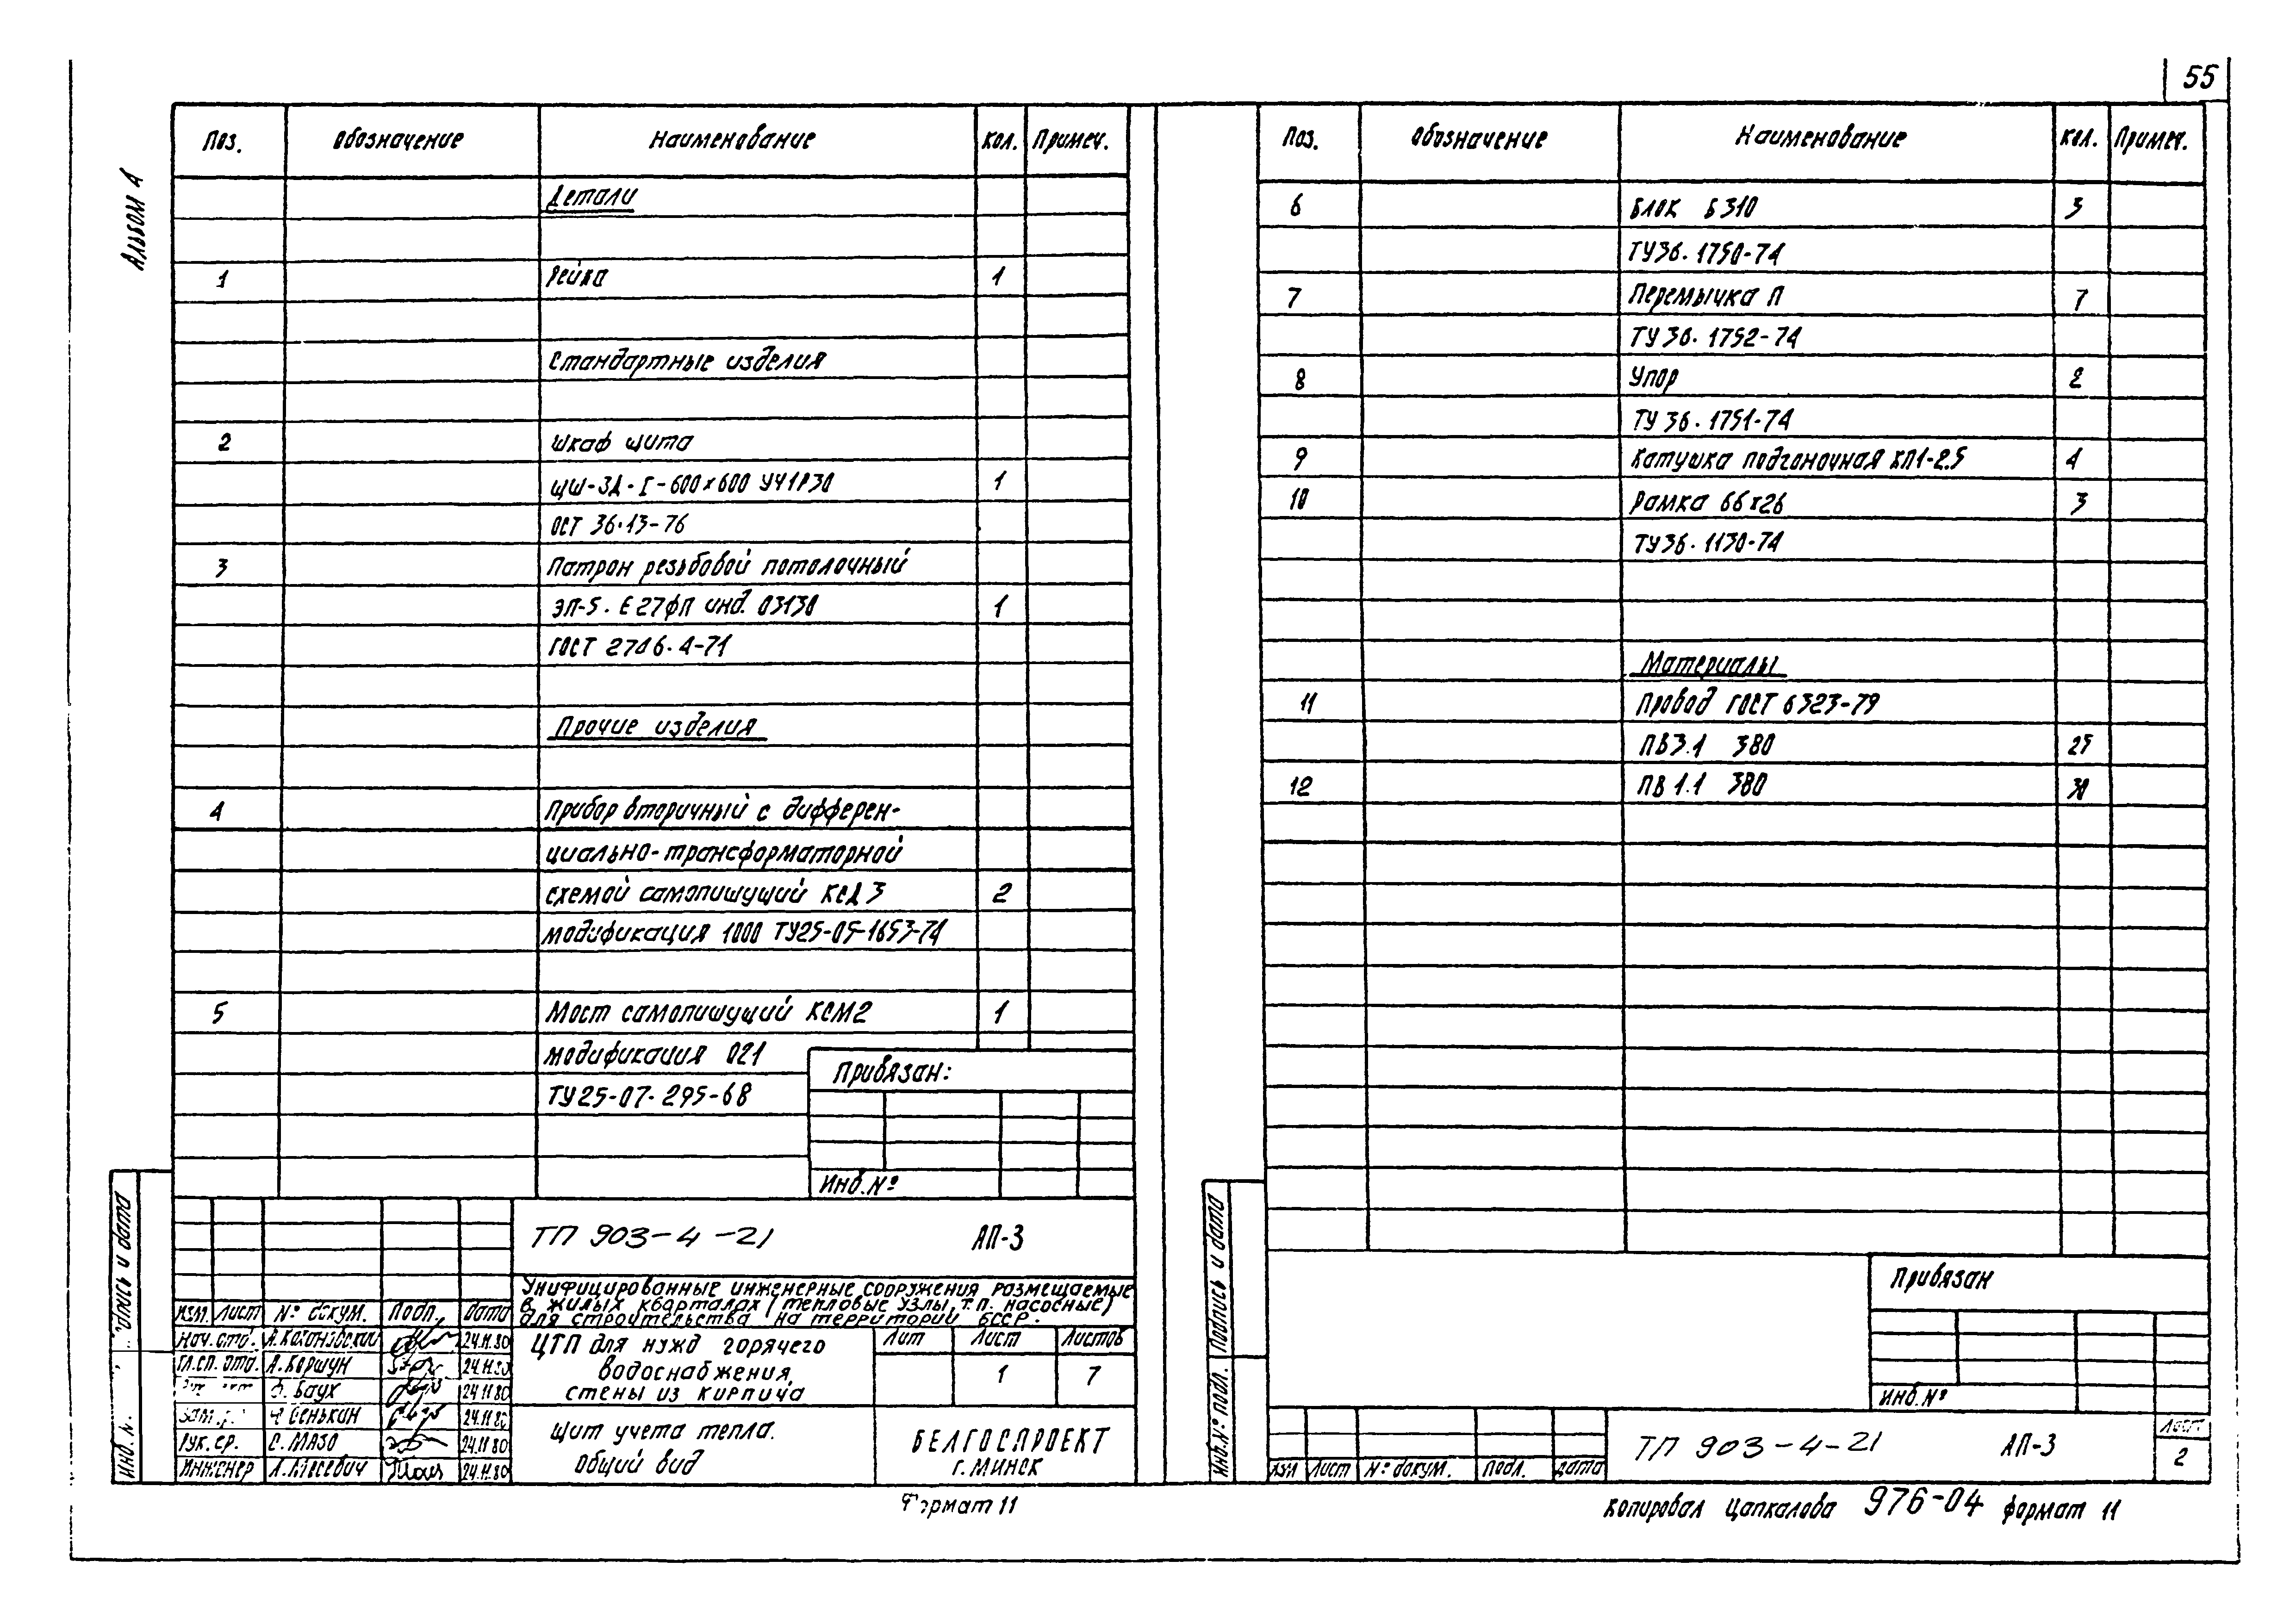 55
Альбом 4
Поз. Обозначение Наименование Кол. Примеч.
Детали
1 Рейка 1
Стандартные изделия
2 Шкаф щита
ЩШ-ЗД-I-600х600 УЧ1Р30 1
ОСТ 36.13-76
3 Патрон резьбовой потолочный
ЭП-5. Е27ФП инд. 03130 1
ГОСТ 2746.4-71
Прочие изделия
4 Прибор вторичный с дифферен-
циально-трансформаторной
схемой самопишущий КСД 3 2
модификация 1000 ТУ25-05-1653-74
5 Мост самопишущий КСМ2 1
модификация 021
ТУ25-07.295-68
Привязан:
Инв.№
ТП 903-4-21 АП-3
Унифицированные инженерные сооружения размещаемые
в жилых кварталах (тепловые узлы, т.п. насосные)
для строительства на территории БССР.
Изм. Лист № докум. Подп. Дата
Нач. отд. 24.11.80
Гл.сп. отд. А. Коршун 24.11.80
Ф. Баух 24.11.80
24.11.80
Рук. гр. С. Мазо 24.11.80
Инженер 24.11.80
ЦТП для нужд горячего
водоснабжения,
стены из кирпича
Лит Лист Листов
1 7
Щит учета тепла.
Общий вид
БЕЛГОСПРОЕКТ
г. Минск
Формат 11
Поз. Обозначение Наименование Кол. Примеч.
6 Блок Б310 3
ТУ36.1750-74
7 Перемычка П 7
ТУ 36.1752-74
8 Упор 2
ТУ 36.1751-74
9 Катушка подгоночная КП1-2.5 4
10 Рамка 66х26 3
ТУ36.1130-74
Материалы
11 Провод ГОСТ 6323-79
ПВ3.1 380 25
12 ПВ 1.1 380 30
Привязан
Инв.№
Инв.№ подл. Подпись и дата
Изм Лист № докум. Подп. Дата
ТП 903-4-21 АП-3
Лист
2
Копировал Цапкалова 976-04 формат 11